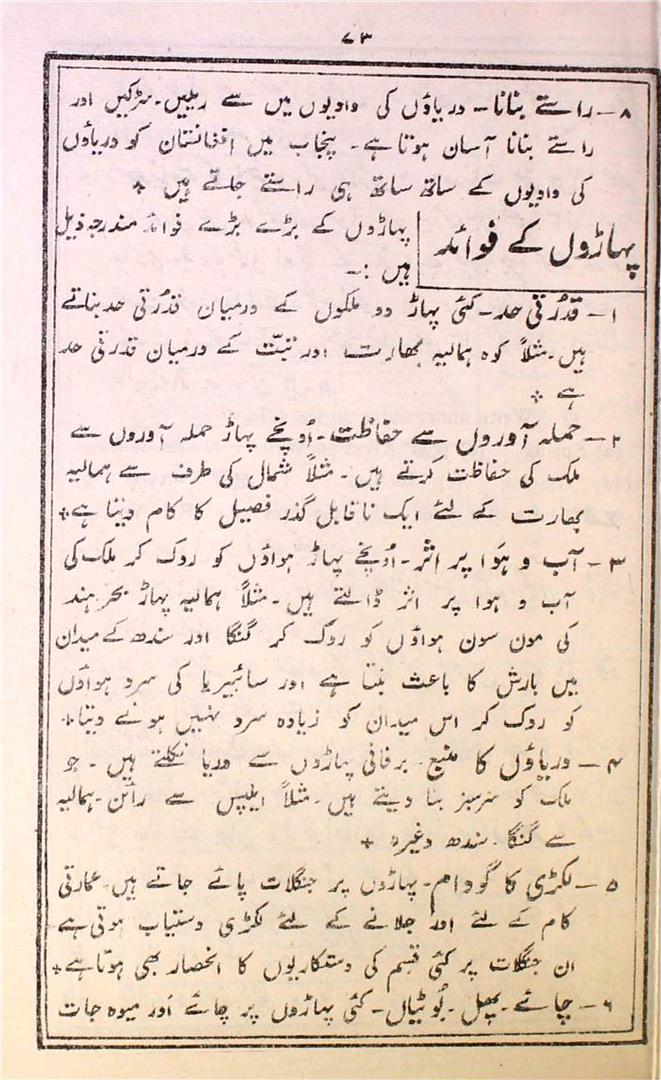 ۷۳
۸ - راستے بنانا - دریاؤں کی وادیوں میں سے ریلیں - سڑکیں اور
راستے بنانا آسان ہوتا ہے - پنجاب میں افغانستان کو دریاؤں
کی وادیوں کے ساتھ ساتھ ہی راستے جاتے ہیں +
پہاڑوں کے فوائد
پہاڑوں کے بڑے بڑے فوائد مندرجہ ذیل
ہیں :-
۱ - قدرتی حد - کئی پہاڑ دو ملکوں کے درمیان قدرتی حد بناتے
ہیں - مثلاً کوہ ہمالیہ بھارت اور تبت کے درمیان قدرتی حد
ہے +
۲ - حملہ آوروں سے حفاظت - اُونچے پہاڑ حملہ آوروں سے
ملک کی حفاظت کرتے ہیں - مثلاً شمال کی طرف سے ہمالیہ
بھارت کے لئے ایک ناقابل گذر فصیل کا کام دیتا ہے +
۳ - آب و ہَوا پر اثر - اُونچے پہاڑ ہواؤں کو روک کر ملک کی
آب و ہوا پر اثر ڈالتے ہیں - مثلاً ہمالیہ پہاڑ بحر ہند
کی مون سون ہواؤں کو روک کر گنگا اور سندھ کے میدان
میں بارش کا باعث بنتا ہے اور سائبیریا کی سرد ہواؤں
کو روک کر اس میدان کو زیادہ سرد نہیں ہونے دیتا +
۴ - دریاؤں کا منبع - برفانی پہاڑوں سے دریا نکلتے ہیں - جو
ملک کو سرسبز بنا دیتے ہیں - مثلاً ایلپس سے رائن - ہمالیہ
سے گنگا - سندھ وغیرہ +
۵ - لکڑی کا گودام - پہاڑوں پر جنگلات پائے جاتے ہیں - عمارتی
کام کے لئے اور جلانے کے لئے لکڑی دستیاب ہوتی ہے
ان جنگلات پر کئی قسم کی دستکاریوں کا انحصار بھی ہوتا ہے +
۶ - چائے - پھل - بُوٹیاں - کئی پہاڑوں پر چائے اَور میوہ جات